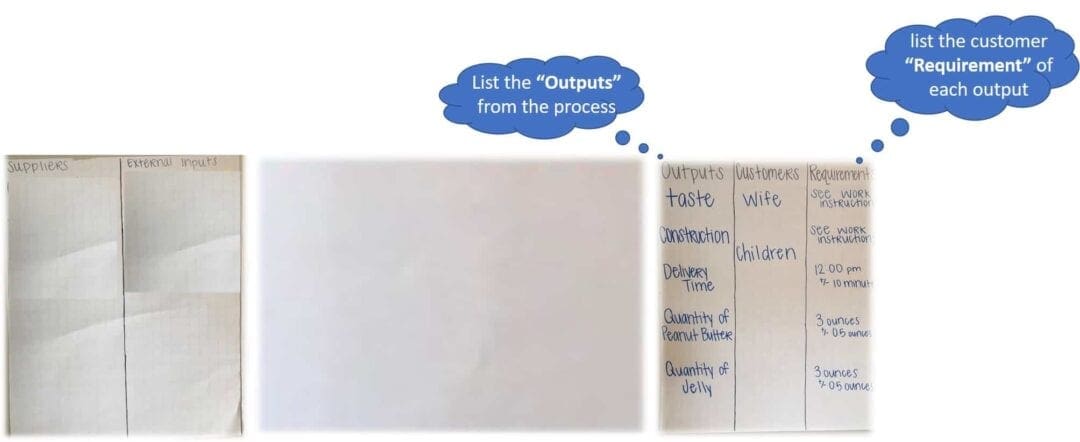 List the “Outputs”
from the process
list the customer
“Requirement” of
each output
Suppliers
External Inputs
Outputs
Customers
Requirement
taste
Wife
See work
instruction
Construction
See work
instruction
Children
Delivery
Time
12:00 pm
+/- 10 minut
Quantity of
Peanut Butter
3 ounces
+/- 05 ounce
Quantity of
Jelly
3 ounces
+/- 05 ounce